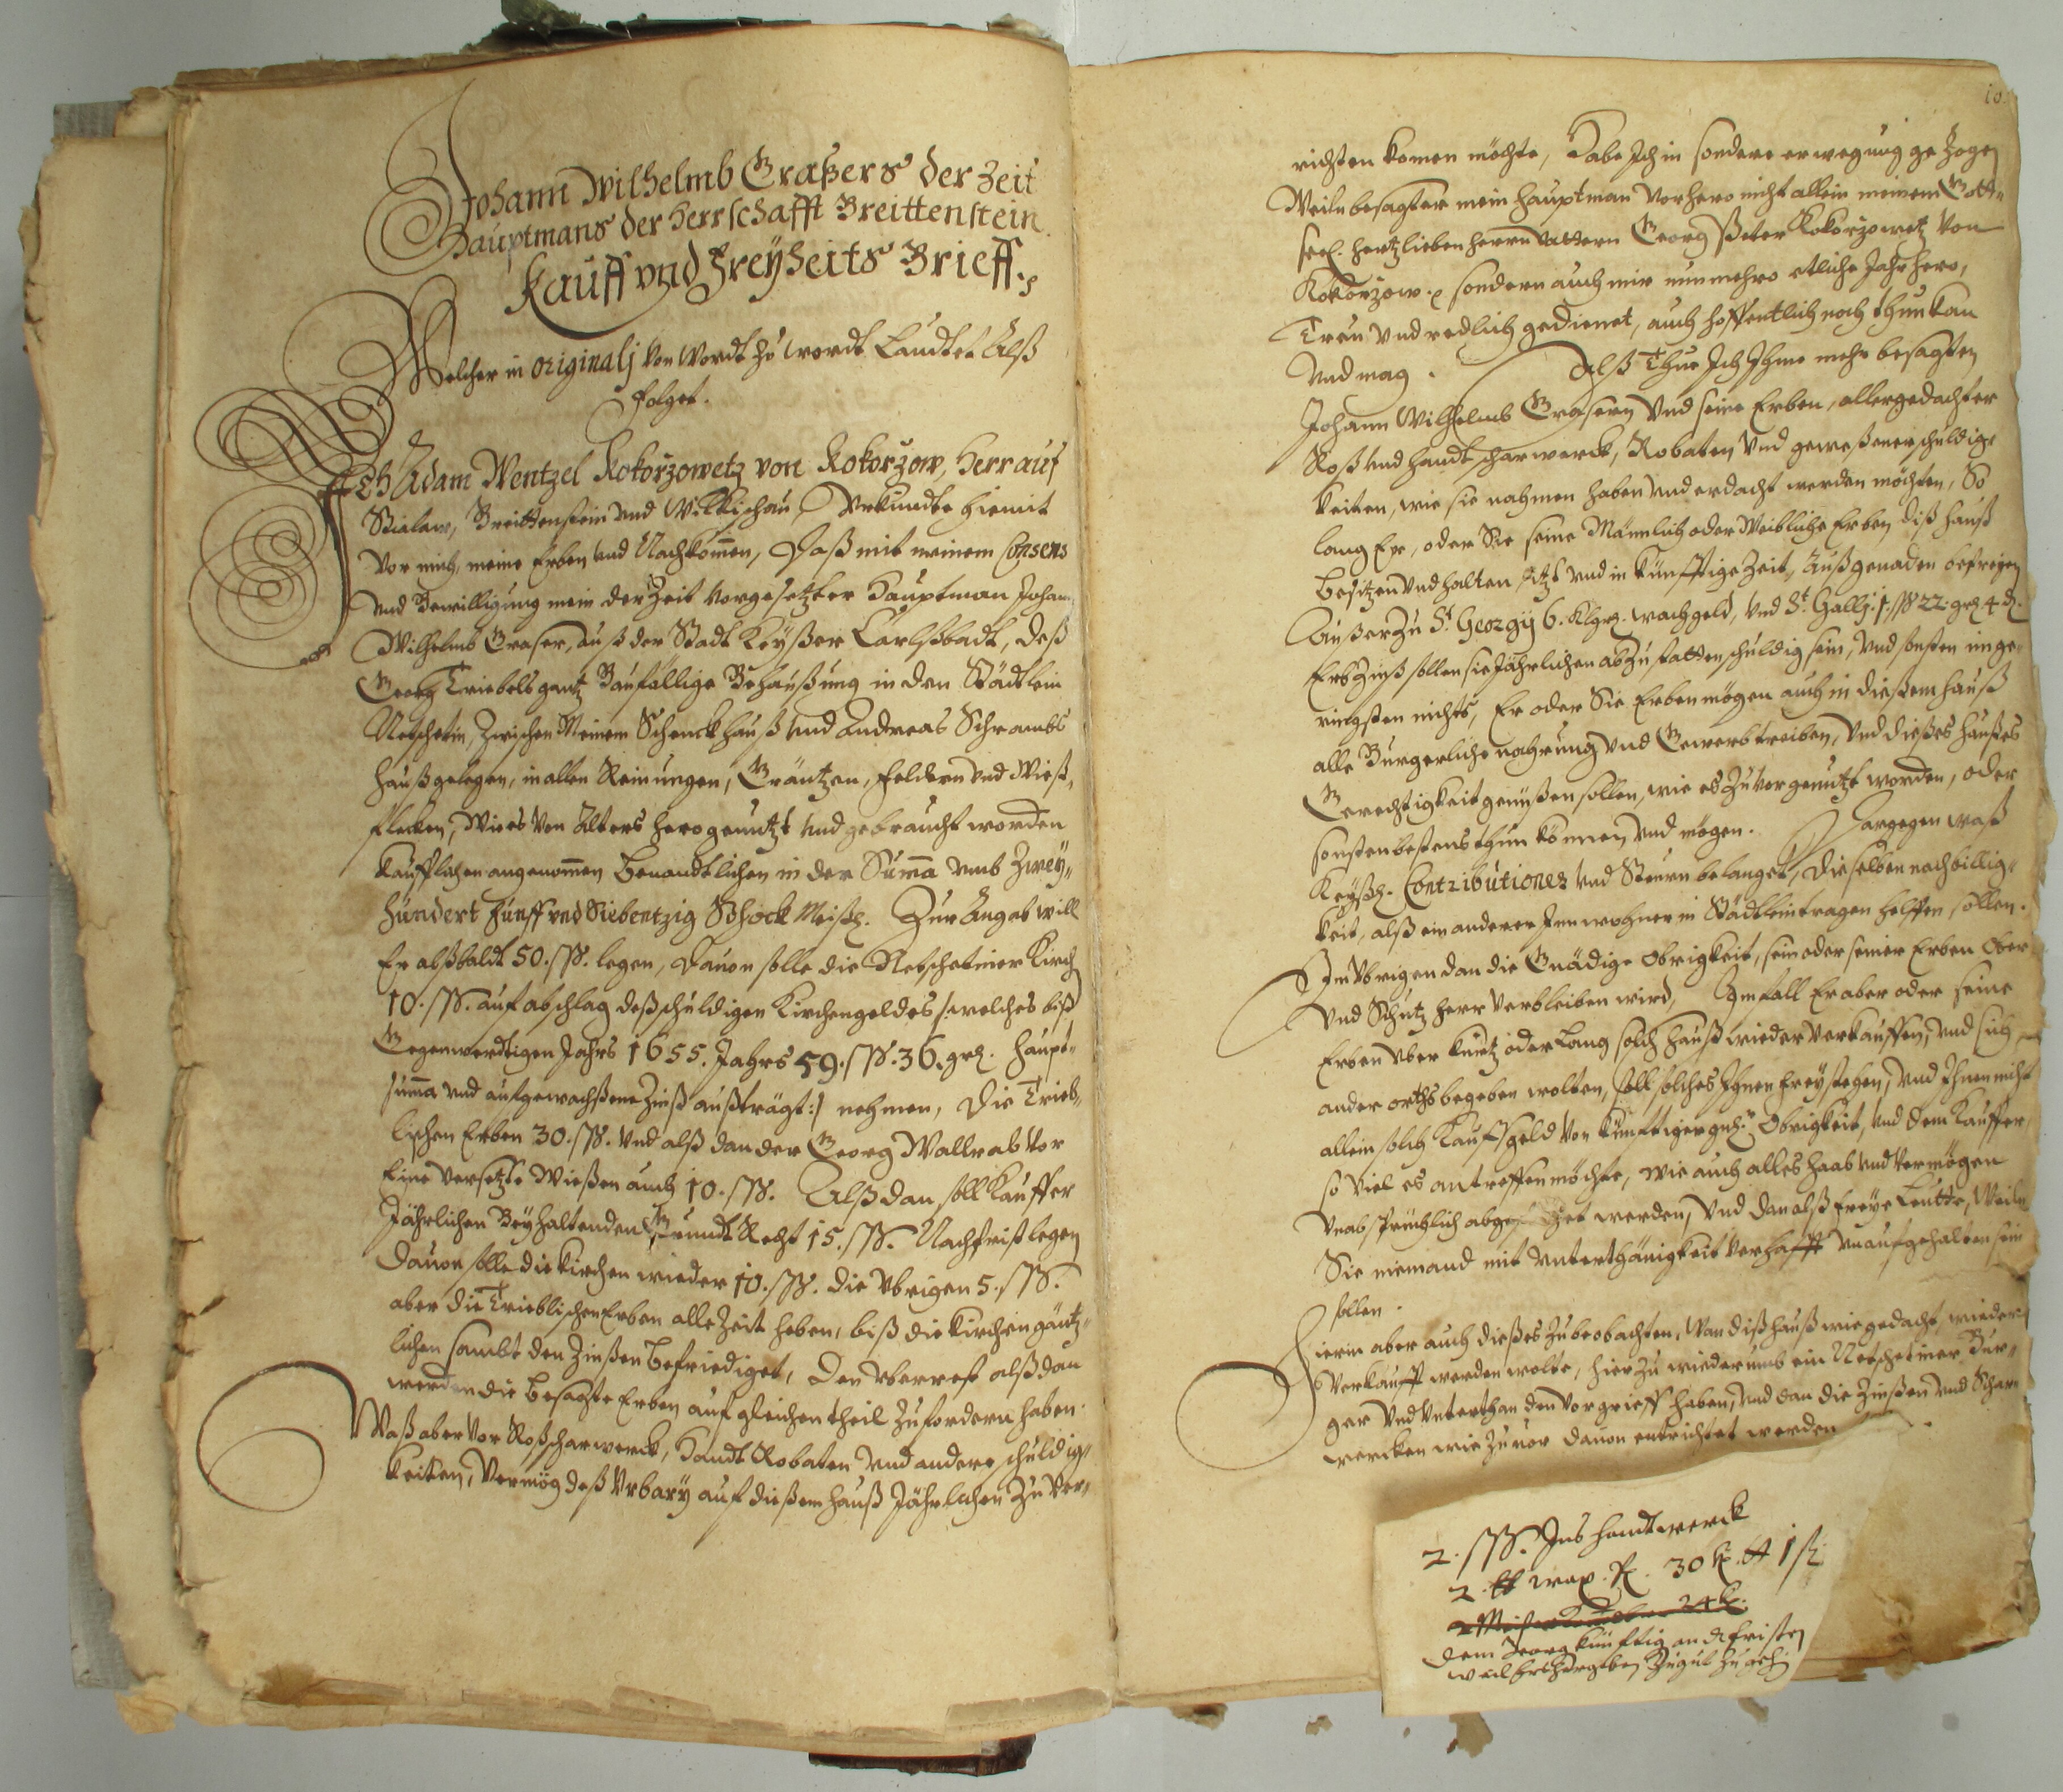 Johann Wilhelmb Graßers der Zeit
Hauptmans der Herrschafft Breittenstein
Kauff vnd Freÿheits Brieff.
Welcher in originalj von Wordt zu wordt Laudtet Alß
folget.
Ich Adam Wentzel Kokorzowetz von Kokorzow, Herr auf
Stialaw, Breittenstein vnd Wilkischau, Vrkundte hiemit
vor mich, meine Erben vnd Nachkom̄en, Daß mit meinem Consens
vnd Bewilligung mein der Zeit vorgesetzter Hauptman Johann
Wilhelmb Graser, auß der Stadt Keÿßer Carlßbadt, deß
Georg Triebels gantz Baufellige Behaußung in den Städtlein
Netschetin, Zwischen Meinem Schenckhauß vnd Andreas Schrambs
Hauß gelegen, in allen Reinungen, Gräntzen, Feldern vnd Wieß,
flecken, Wie es von Alters hero genutzt vnd gebraucht worden
Kaufflichen angenom̄en Benandtlichen in der Sum̄a vmb Zweÿ-
hundert Fünff vnd Siebentzig Schock Meißn. Zur Angab will
Er alßbaldt 50. ßß. legen, Dauon solle die Netschetiner Kirch
10. ßß. auf abschlag deß schuldigen Kirchengeldes /: welches biß
Gegenwerdtigen Jahrs 1655. Jahrs 59. ßß. 36. gr. Haupt-
sum̄a vnd aufgewachßene Zinß außträgt :/ nehmen, Die Trieb-
lischen Erben 30. ßß. vnd alß dan der Georg Wallrab vor
Eine versetzte Wießen auch 10. ßß. Alß dan soll Kauffer
Jährlichen Beÿ haltenden Grundt Recht 15. ßß. Nachfrist legen
Dauon solle die Kirchen wieder 10. ßß. die Vbrigen 5. ßß.
aber die Trieblischen Erben alle Zeit heben, biß die Kirchen gäntz-
lichen sambt den Zinßen Befriediget, Den vberrest alß dan
werden die Besagte Erben auf gleichen theil zu fordern haben.
Waß aber vor Roßscharwerck, Handt Robaten vnd andere schuldig-
keiten, Vermög deß Vrbarÿ auf dießem Hauß Jährlichen Zu ver-
10.
richten komen möchte, Habe Ich in sondere erwegung gezogen
Weiln besagter mein Hauptman vorhero nicht allein meinem Gott-
seel. hertzlieben Herrn Vattern Georg Peter Kokorzowetz von
Kokorzow. sondern auch mir nunmehro etliche Jahr hero,
Treu vnd redlich gedienet, auch hoffentlich noch thun kan
vnd mag. Alß Thue Ich Ihme mehr besagten
Johann Wilhelmb Grasern vnd seine Erben, aller gedachter
Roß vnd Handt scharwerck, Robaten vnd geweßener schuldig-
keiten, wie sie nahmen haben vnd erdacht werden möchten, So
lang Er, oder Sie seine Mänlich oder Weibliche Erben diß Hauß
Besitzen vnd halten Itzt vnd in künfftige Zeit, Auß genaden befreyen
Außer Zu St. Georgÿ 6. Klgr. wachgeld, vnd St. Gallj. 1. ßß 22. gr. 4 d.
Erb Zinß sollen sie Jährlichen abzustatten schuldig sein, vnd sonsten im ge-
ringsten nichts, Er oder Sie Erben mögen auch in dießem Hauß
alle Burgerliche nahrung vnd Gewerb treiben, vnd dießes Haußes
Gerechtigkeit genüßen sollen, wie es zuvor genutzt worden, oder
sonsten bestens thun können vnd mögen. Dargegen waß
Keÿßl. Contributiones vnd Steurn belanget, dieselben nach billig-
keit, alß ein anderer Innwohner in Städtlein tragen helffen sollen.
Im Vbrigen dan die Gnädige Obrigkeit, sein oder seiner Erben Ober
vnd Schutz Herr verbleiben wird, Im fall Er aber oder seine
Erben vber kurtz oder Lang solch Hauß wieder verkauffen, vnd sich
ander orths begeben wolten, soll solches Ihnen freÿ stehen, vnd Ihnen nicht
allein solch Kaufgeld von künfftiger gnd. Obrigkeit, vnd dem Kauffer
so viel es antreffen möchte, wie auch alles Haab vnd Vermögen
vnabsprüchlich werden, vnd dan alß freÿe Leutte, Weiln
Sie niemand mit Vnterthänigkeit verhafft vnaufgehalten sein
sollen.
Hierin aber auch dießes zu beobachten, Wan diß Hauß wie gedacht, wieder
verkaufft werden wolte, hier Zu wiederumb ein Netschetiner Bur-
ger vnd Vnterthan den vorgrieff haben, vnd dan die Zinßen vnd Schar-
wercken wie Zuuor dauon entrichtet werden
2. ßß. Ins Handtwerck
2. ℔ wax. 30 k. 1 ß
24 k.
dem Georg künftig an d fristen